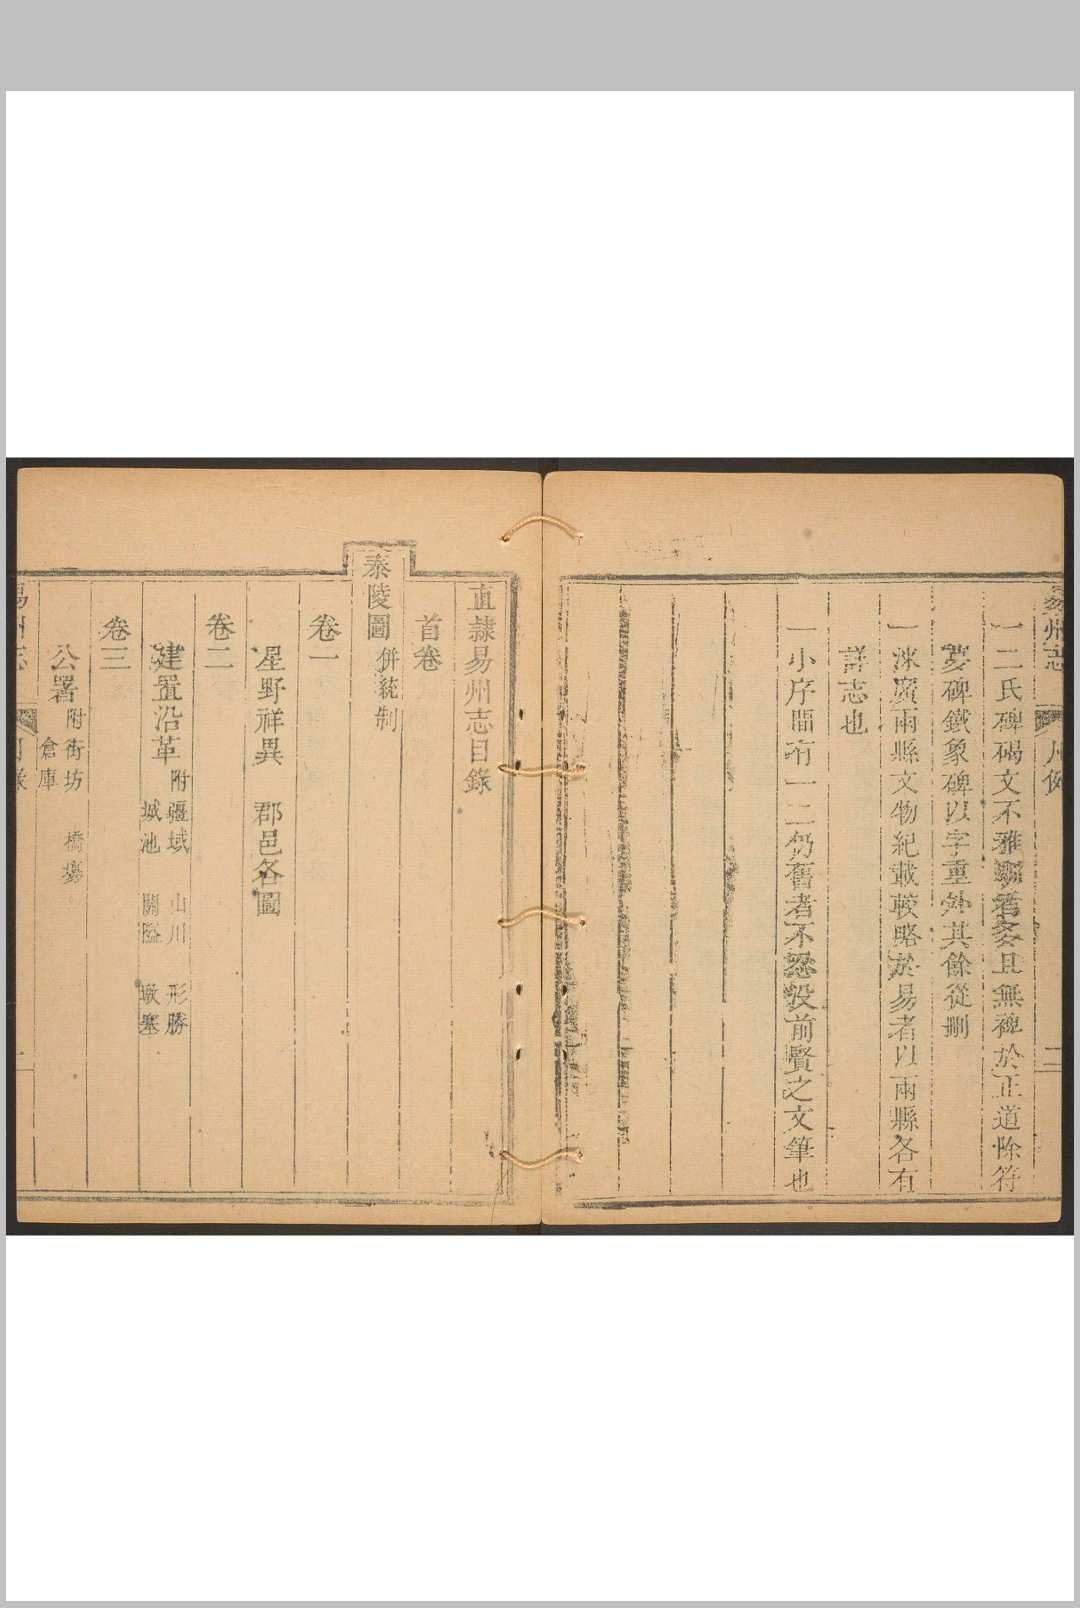 易州志
凡例
三
一二氏碑碣文不雅馴者多且無裨於正道除符
夢碑鐵象碑以字重外其餘從刪
一淶廣兩縣文物紀載較略於易者以兩縣各有
詳志也
一小序間有一二仍舊者不忍沒前賢之文筆也
直隸易州志目錄
首卷
泰陵圖 併統制
卷一
星野祥異 郡邑各圖
卷二
建置沿革 附疆域 山川 形勝
城池 關隘 墩塞
卷三
公署 附街坊 橋
倉庫
易州志
目錄
一